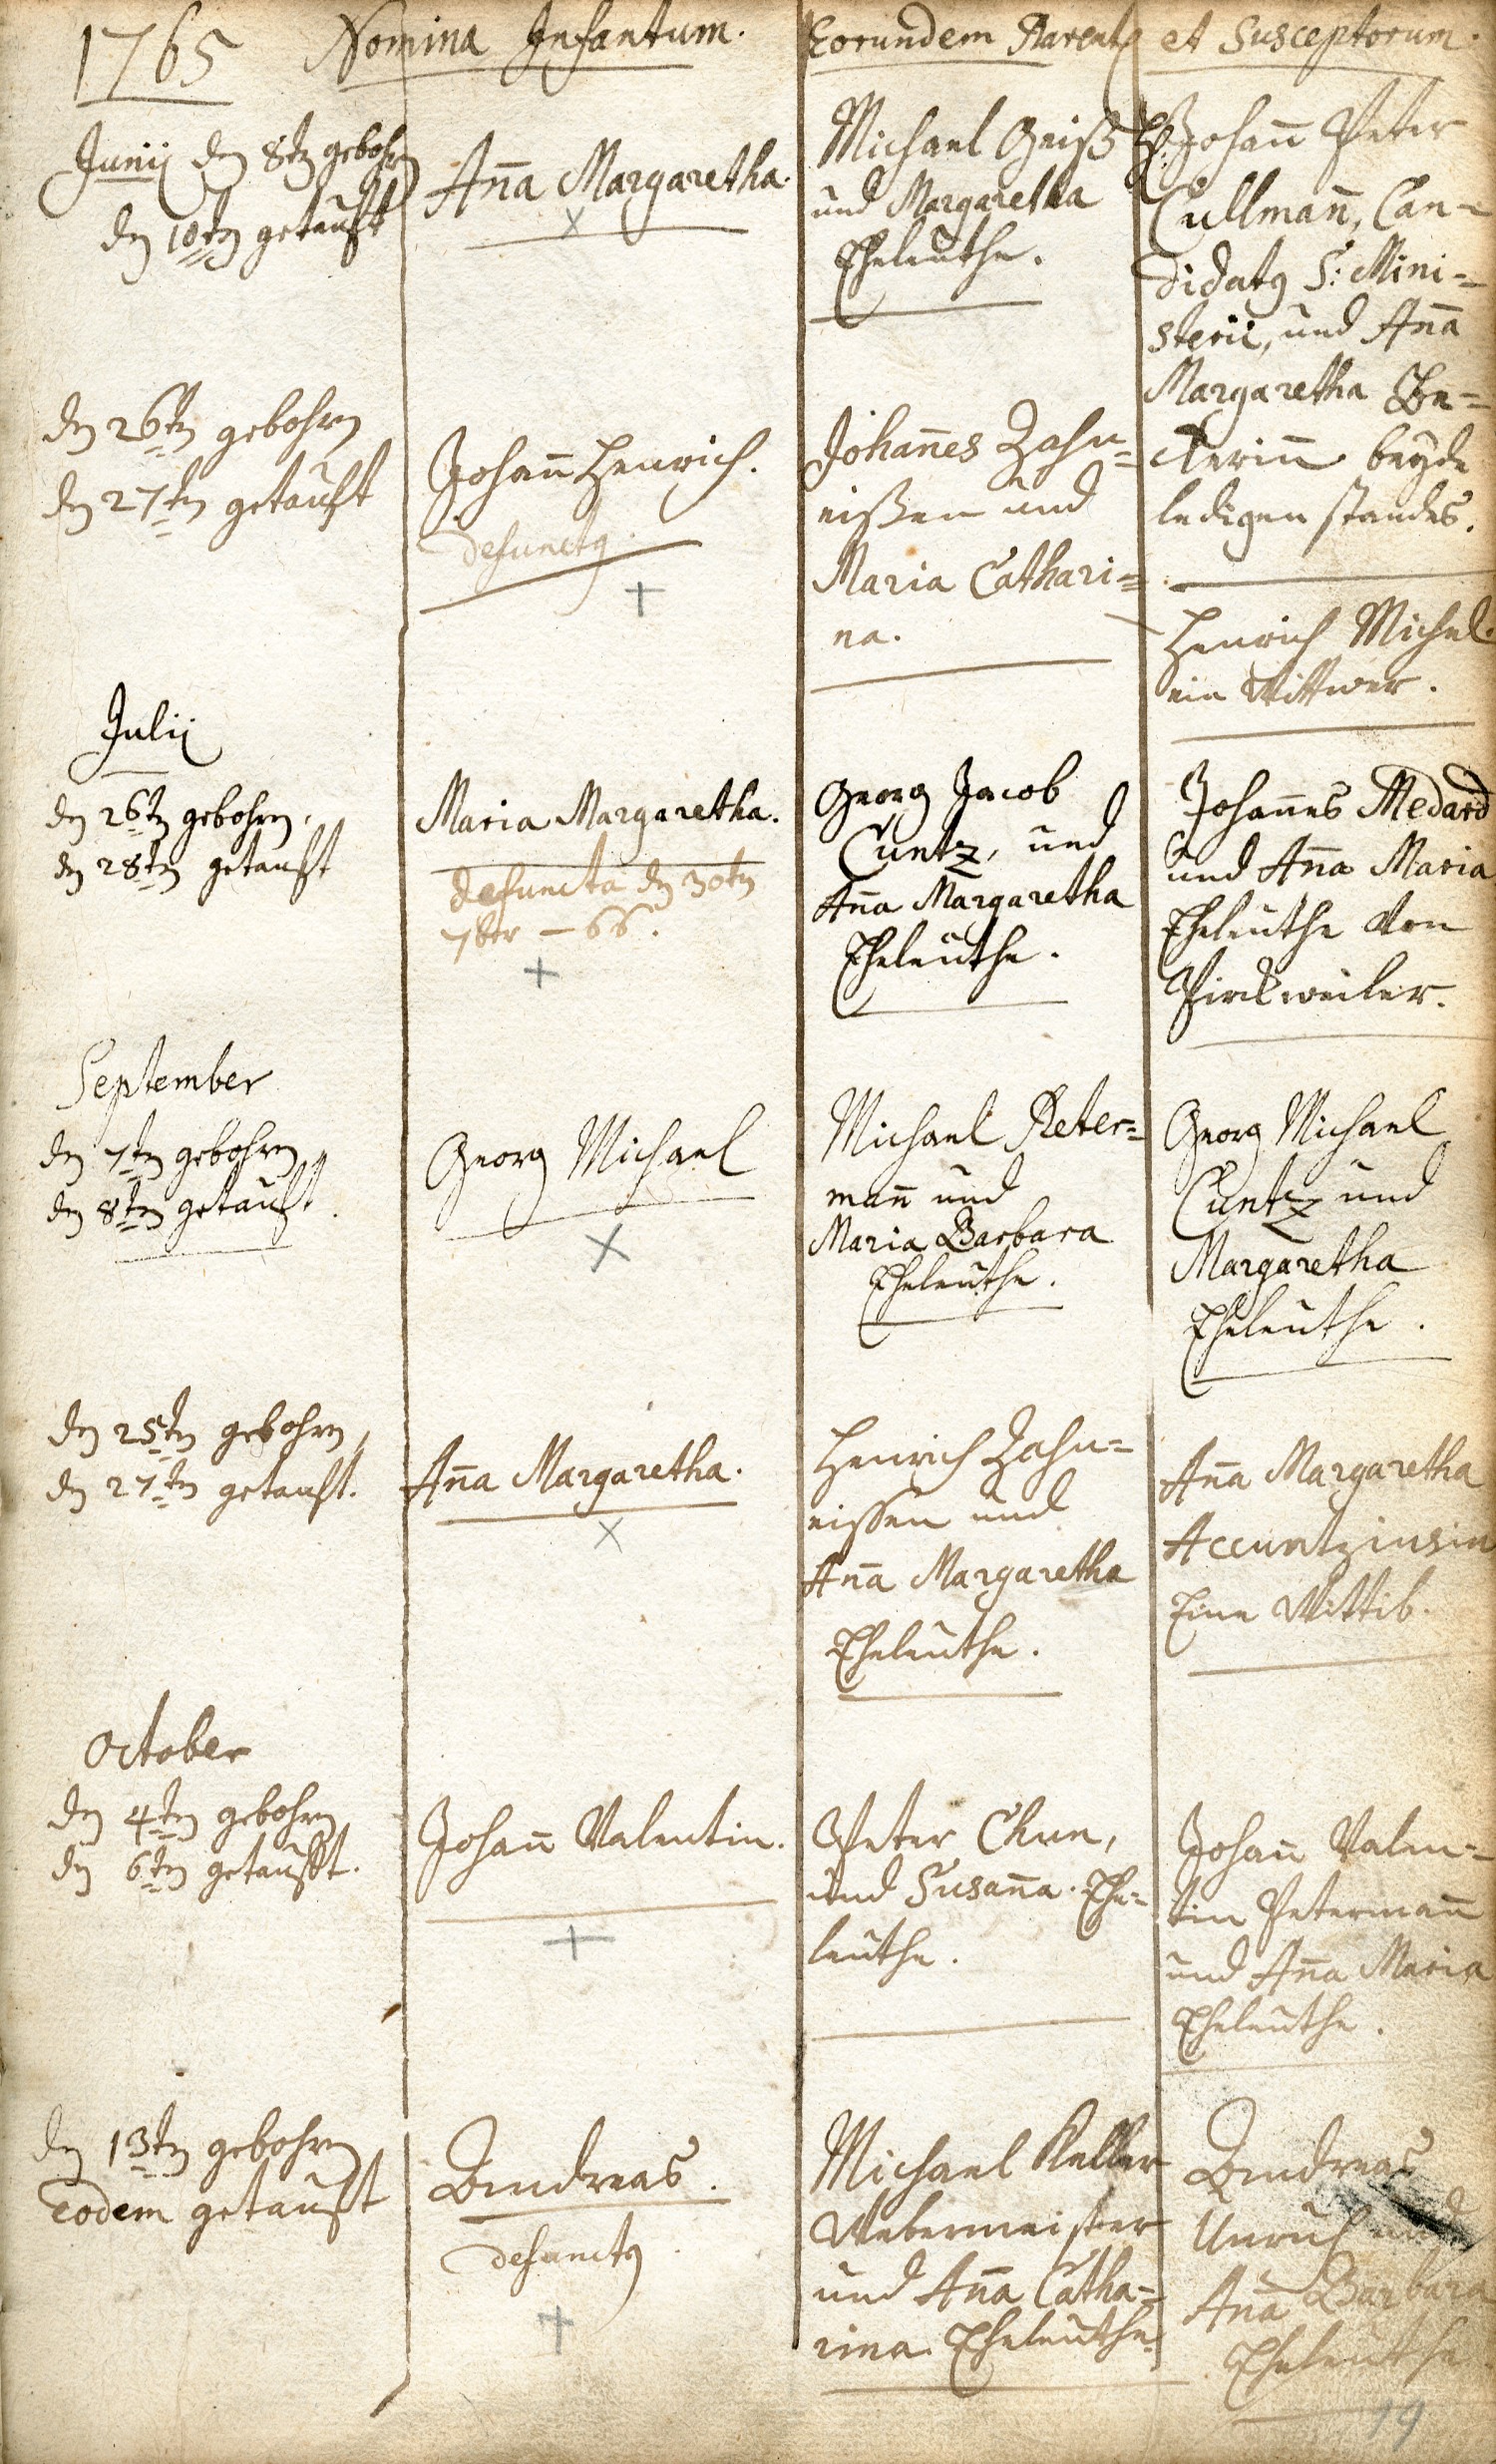 1765 Nomina Infantum. Eorundem Parent. et Susceptorum.
Junii den 8ten gebohren
den 10ten getauft
Anna Margaretha.
Michael Geiß
und Margaretha
Eheleuthe.
H. Johann Peter
Cullmann, Can=
didatus S: Mini=
sterii, und Anna
Margaretha Be=
ckerinn beyde
ledigen standes.
den 26ten gebohren
den 27ten getauft
Johann Henrich.
defunctus
Johannes Zahn=
eißen und
Maria Cathari=
na.
Henrich Michel.
ein Wittwer.
Julii
den 26ten gebohren,
den 28ten getauft
Maria Margaretha.
defuncta den 30ten
7ber – 66.
Georg Jacob
Cuntz, und
Anna Margaretha
Eheleuthe.
Johannes Medard
und Anna Maria
Eheleuthe von
Pirckweiler.
September
den 7ten gebohren
den 8ten getauft.
Georg Michael
Michael Peter=
mann und
Maria Barbara
Eheleuthe.
Georg Michael
Cuntz und
Margaretha
Eheleuthe.
den 25ten gebohren,
den 27ten getauft.
Anna Margaretha.
Henrich Zahn=
eissen und
Anna Margaretha
Eheleuthe.
Anna Margaretha
Eine Wittib.
October
den 4ten gebohren
den 6ten getaufft.
Johann Valentin.
Peter Chun,
und Susanna. Ehe=
leuthe.
Johann Valen=
tin Petermann
und Anna Maria
Eheleuthe.
den 13ten gebohren
Eodem getauft
Andreas.
defunctus
Michael Keller
Webermeister
und Anna Catha=
rina. Eheleuthe.
Andreas
Unruh und
Anna Barbara
Eheleuthe.
19